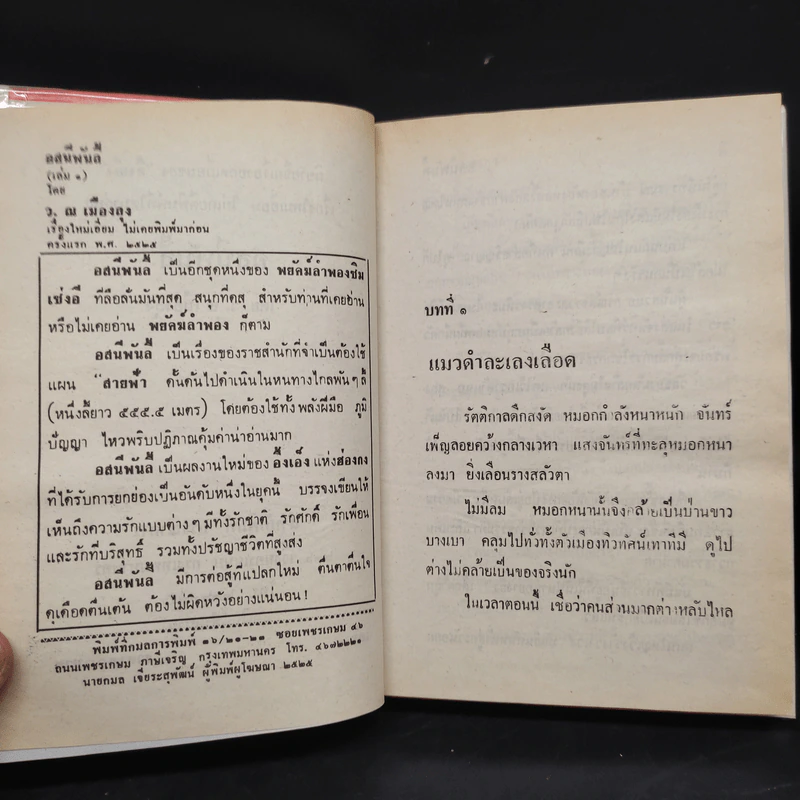 อสนีพันลี้
(เล่ม ๑)
โดย
ว. ณ เมืองลุง
เรื่องใหม่เอี่ยม ไม่เคยพิมพ์มาก่อน
ครั้งแรก พ.ศ. ๒๕๒๕
อสนีพันลี้ เป็นอีกชุดหนึ่งของ พยัคฆ์ลำพองซิม
เซ่งอี ที่ลือลั่นมันที่สุด สนุกที่ดสุ สำหรับท่านที่เคยอ่าน
หรือไม่เคยอ่าน พยัคฆ์ลำพอง ก็ตาม
อสนีพันลี้ เป็นเรื่องของราชสำนักที่จำเป็นต้องใช้
แผน "สายฟ้า ดั้นดันไปดำเนินในหนทางไกลพันๆลี้
(หนึ่งลี้ยาว ๕๕๕.๕ เมตร) โดยต้องใช้ทั้งพลังฝีมือ ภูมิ
ปัญญา ไหวพริบปฏิภาณคุ้มค่าน่าอ่านมาก
อสนีพันลี้ เป็นผลงานใหม่ของ อึ้งเอ็ง แห่งฮ่องกง
ที่ได้รับการยกย่องเป็นอันดับหนึ่งในยุคนี้ บรรจงเขียนให้
เห็นถึงความรักแบบต่างๆ มีทั้งรักชาติ รักศักดิ์ รักเพื่อน
และรักที่บริสุทธิ์ รวมทั้งปรัชญาชีวิตที่สูงส่ง
อสนีพันลี้ มีการต่อสู้ที่แปลกใหม่ ตื่นตาตื่นใจ
ดุเดือดตื่นเต้น ต้องไม่ผิดหวังอย่างแน่นอน!
พิมพ์ที่กมลการพิมพ์ ๑๖/๒๑-๒๒ ซอยเพชรเกษม ๔๖
ถนนเพชรเกษม ภาษีเจริญ กรุงเทพมหานคร โทร. ๔๖๗๒๒๒๑
นายกมล เจียระสุพัฒน์ ผู้พิมพ์ผู้โฆษณา ๒๕๒๕
บทที่ ๑
แมวดำละเลงเลือด
รัตติกาลดึกสงัด หมอกกำลังหนาหนัก จันทร์
เพ็ญลอยคว้างกลางเวหา แสงจันทร์ที่ทะลุหมอกหนา
ลงมา ยิ่งเลือนรางสลัวตา
ไม่มีลม หมอกหนานั้นจึงคล้ายเป็นม่านขาว
บางเบา คลุมไปทั่วทั้งตัวเมืองทิวทัศน์เทาทึมี ดูไป
ต่างไม่คล้ายเป็นของจริงนัก
ในเวลาตอนนี้ เชื่อว่าคนส่วนมากต่างหลับไหล